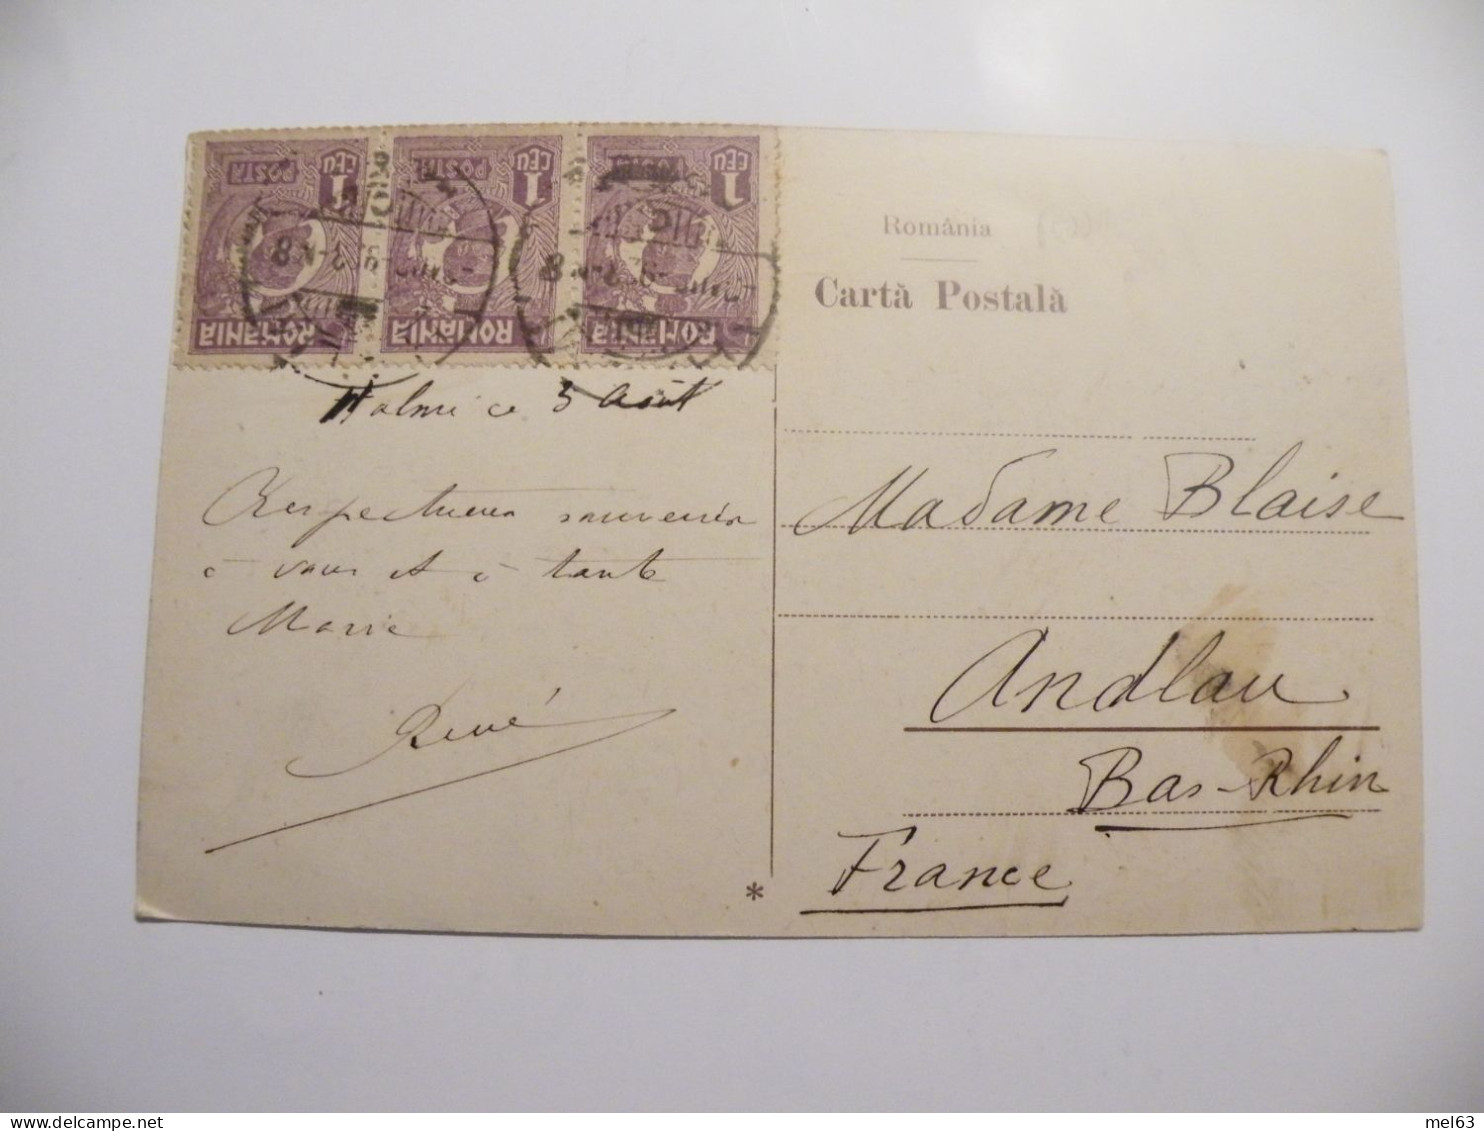 1 LEU POSTA 1 LEU POSTA 1 LEU POSTA
ROMANIA ROMANIA ROMANIA
România
Cartă Postală
Halmi ce 5 Août
Respectueux souvenir
à vous et à tante
Marie
René
Madame Blaise
Andlau
Bas-Rhin
France
*
mel63